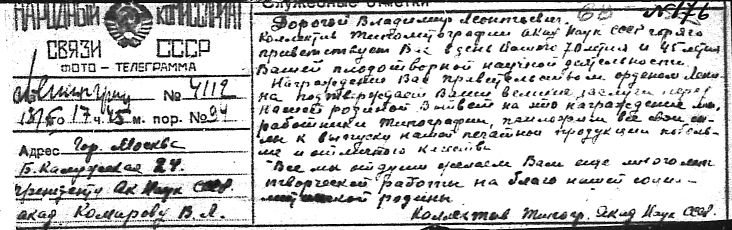 НАРОДНЫЙ КОМИССАРИАТ
СВЯЗИ СССР
ФОТО – ТЕЛЕГРАММА
Ленинград № 4112
17 ч. 45 м. пор. № 94
Адрес Гор. Москва
Б. Калужская 24.
президенту Ак Наук СССР.
акад Комарову В Л.
Служебные отметки
№176
Дорогой Владимир Леонтьевич.
Коллектив Типолитографии Акад Наук СССР горячо
приветствует Вас в день Вашего 70летия и 45летия
Вашей плодотворной научной деятельности.
Награждение Вас правительством орденом Лени-
на подтверждает Ваши великие заслуги перед
нашей родиной В ответ на это награждение мы,
работники Типографии, приложим все свои си-
лы к выпуску нашей печатной продукции
и отличного качества.
Все мы от души желаем Вам еще много лет
творческой работы на благо нашей социа-
родины.
Коллектив Типогр. Акад Наук СССР.